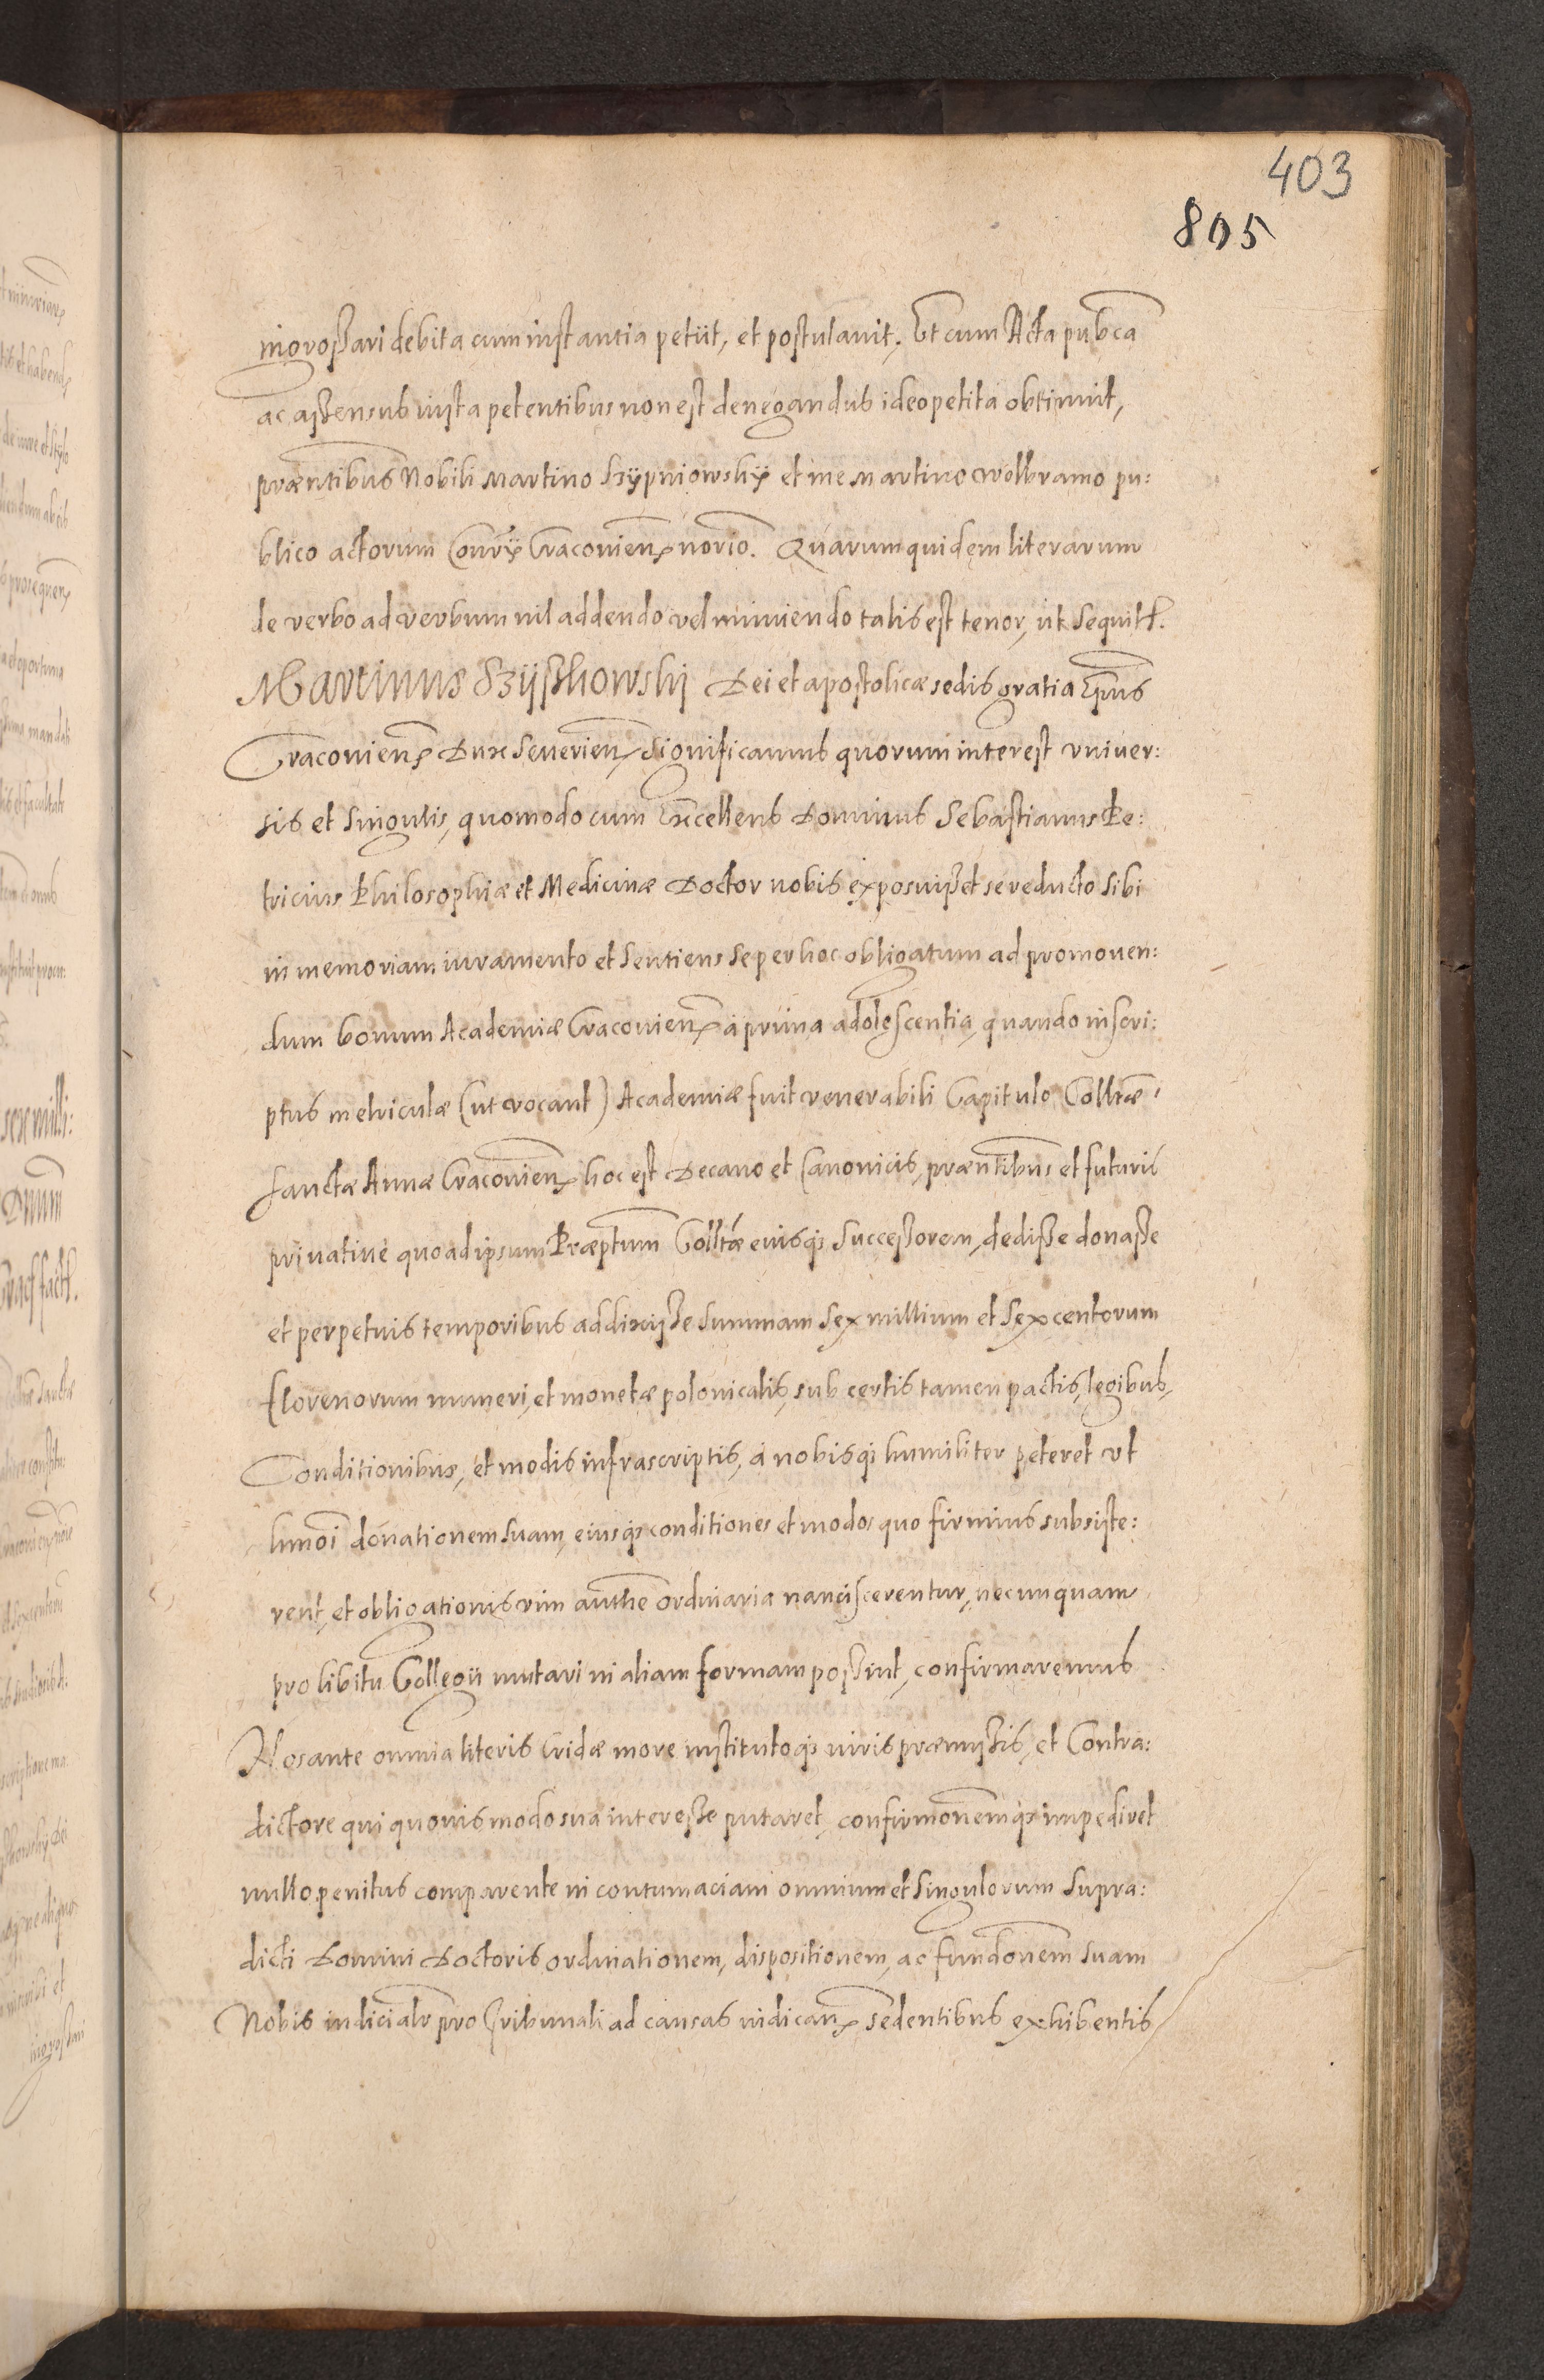 403
805
ingrossari debita cum instantia petiit, et postulavit. Et cum Acta pubca
ac assensus iusta petentibus non est denegandus ideo petita obtinuit,
præntibus Nobili Martino Szÿpniowskÿ et me Martino Wolbramo pu:
blico actorum Conrÿ Cracovien norio. Quarum quidem literarum
de verbo ad verbum nil addendo vel minuendo talis est tenor, ut sequitr.
Martinus Szÿszkowski Dei et apostolicæ sedis gratia Epus
Cracovien Dux Severien, Significamus quorum interest univer:
sis et singulis, quomodo cum Excellens Dominus Sebastianus Pe:
tricius Philosophiæ et Medicinæ Doctor nobis exposuisset se reducto sibi
in memoriam iuramento et sentiens se per hoc obligatum ad promoven:
dum bonum Academiæ Cracovien à prima adolescentia, quando inscri:
ptus metriculæ (ut vocant) Academiæ fuit venerabili Capitulo Colltæ
sanctæ Annæ Cracovien, hoc est Decano et Canonicis, præntibus et futuris
privative quoad ipsum Præptum Colltæ eiusqs successorem, dedisse donasse
et perpetuis temporibus addixisse summam sex millium et sexcentorum
florenorum numeri, et monetæ polonicalis, sub certis tamen pactis, legibus,
Conditionibus, et modis infrascriptis, à nobisqs humiliter peteret ut
hmoi donationem suam, eiusqs conditiones et modos quo firmius subsiste:
rent, et obligationis vim autthe ordinaria nanciscerentur, nec unquam
pro libitu Collegii mutari in aliam formam possint, confirmaremus
Nos ante omnia literis Cridæ more institutoqs iuris præmissis, et Contra:
dictore qui quovis modo sua interesse putaret, confirmonemqs impediret
nullo penitus comparente in contumaciam omnium et singulorum supra:
dicti Domini Doctoris ordinationem, dispositionem, ac fundonem suam
Nobis iudicialr pro Tribunali ad causas iudican sedentibus exhibentis